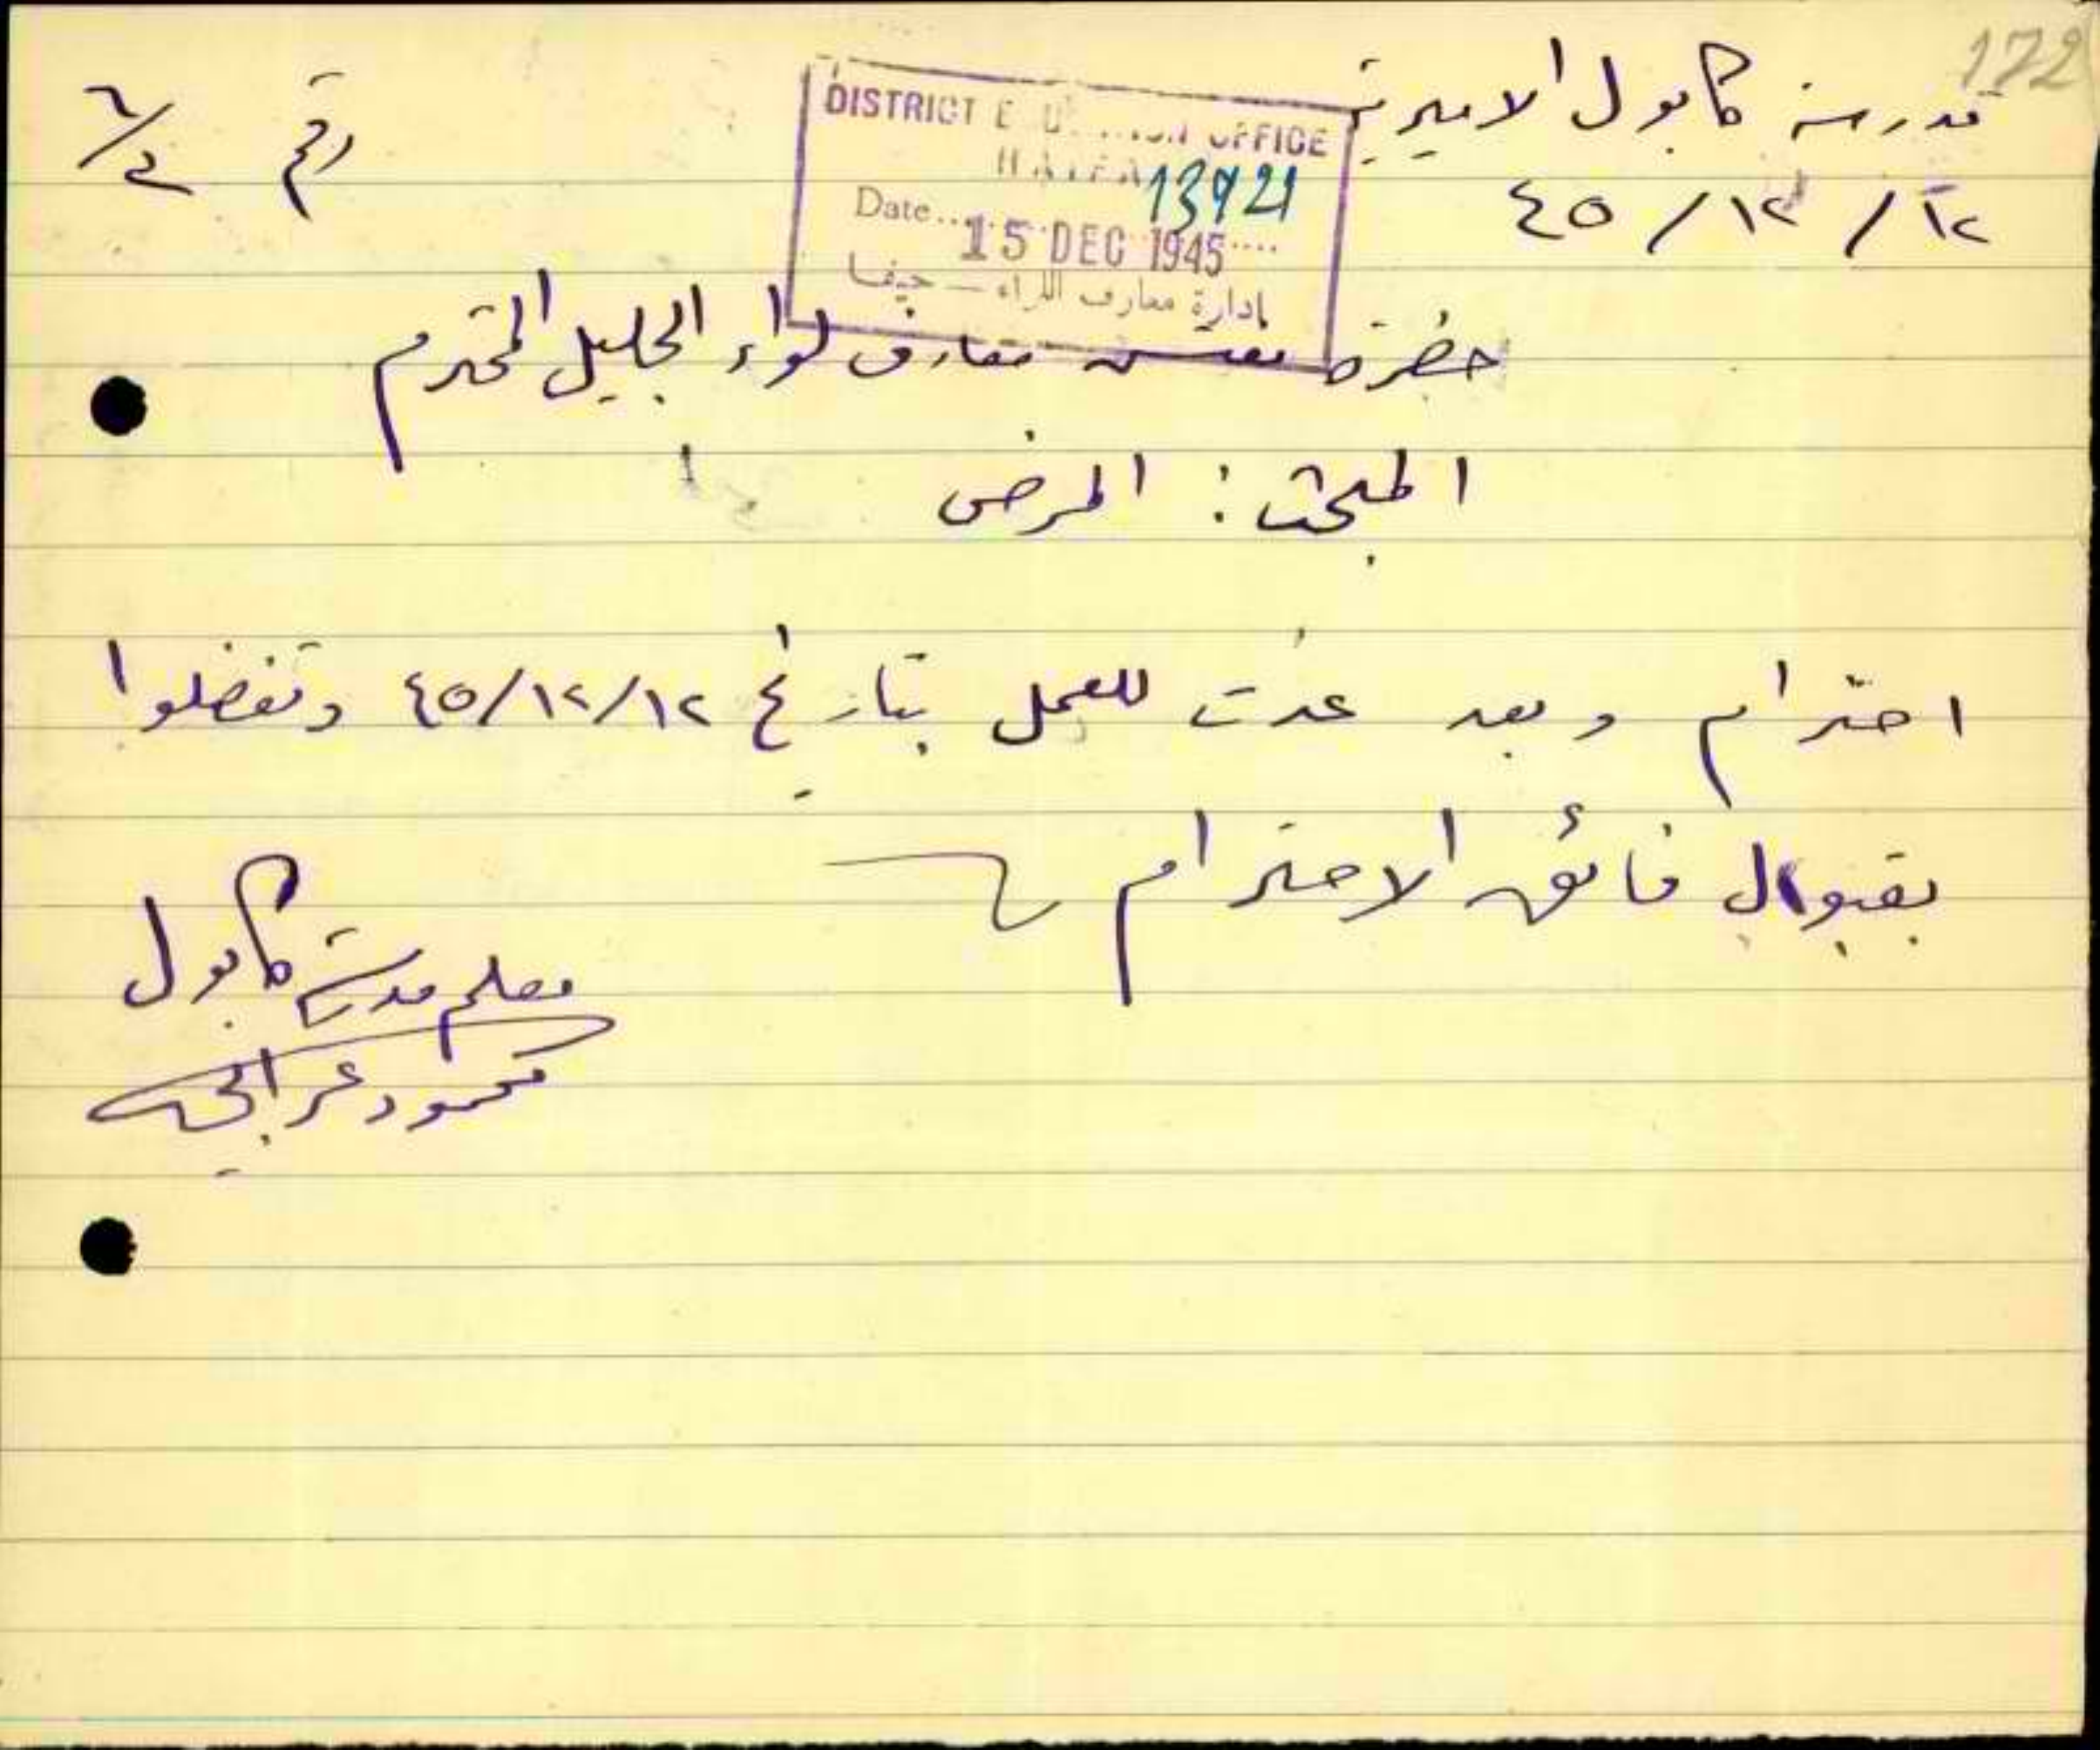 172
مدرسة كابول الاميرية
١٢/ ١٢/ ٤٥
رقم
DISTRICT OFFICE
HAIFA 13921
Date....
15 DEC 1945....
إدارة معارف اللواء – حيفا
حضرة مفتش معارف لواء الجليل المحترم
المبحث : المرض
احترام وبعد عدت للعمل بتاريخ ١٢/١٢/٤٥ وتفضلوا
بقبول فائق الاحترام
معلم مدرسة كابول
محمود